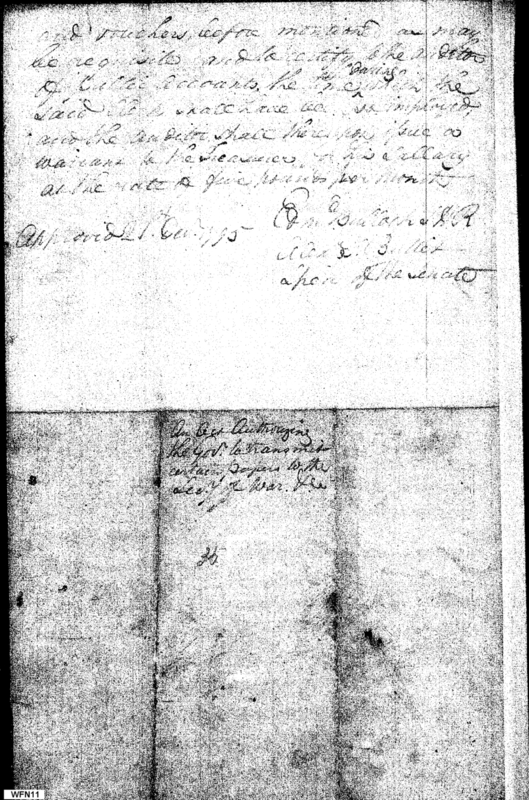 and vouchers before mentioned as may
be requisite and to certify to the auditor
of Public accounts the time
said Clerk shall have been so employed
and the auditor shall thereupon issue a
warrant to the Treasurer for his Sallary
at the rate of five pounds per month
Approved 21st 1795
Edm Bullock S H R
Alex S Bullitt
Spkr of the Senate
An Act Authorizing
the Govr to transmit
certain papers to the
Secy of War. &c
35
WFN11